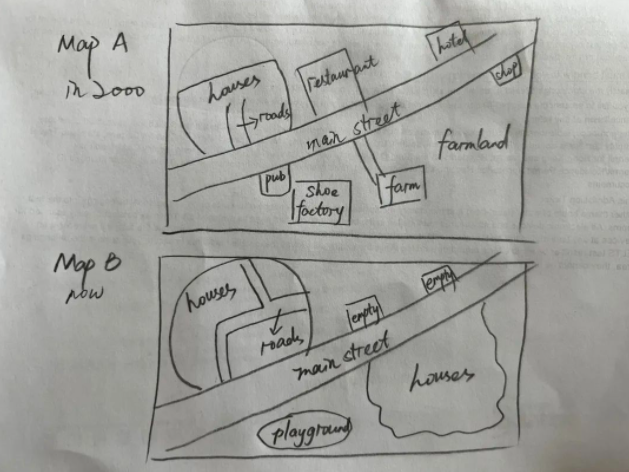 Map A
in 2000
hotel
houses
restaurant
shop
roads
main street
farmland
pub
shoe
factory
farm
Map B
now
houses
empty
empty
roads
main street
houses
playground